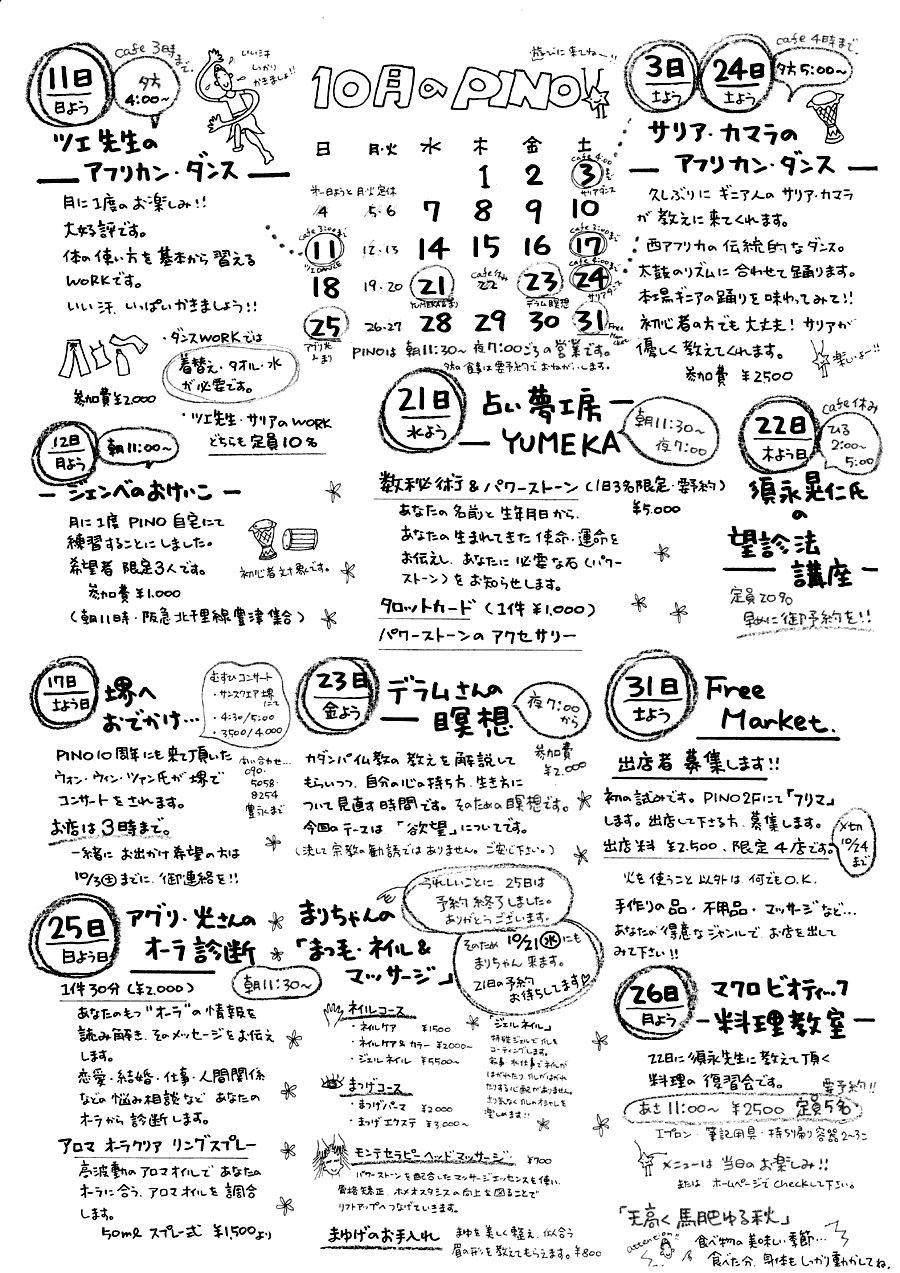 10月のPINO!!
遊びに来てねー!!
11日
日よう
cafe 3時まで
夕方
4:00〜
いい汗
しっかり
かきましょ!!
ツエ先生の
アフリカン・ダンス
月に1度のお楽しみ!!
大好評です。
体の使い方を基本から習える
WORKです。
いい汗いっぱいかきましょう!!
・ダンスWORKでは
着替え・タオル・水
が必要です。
参加費¥2000
・ツエ先生・サリアのWORK
どちらも定員10名
日 月・火 水 木 金 土
1 2 3
cafe 4:00まで
サリアダンス
第一日ようと月火定休
4 5・6 7 8 9 10
cafe 3:00まで
11 12・13 14 15 16 17
ツエDANCE
cafe 3:00まで
18 19・20 21 22 23 24
cafe休み
cafe 4:00まで
デラム瞑想
サリアダンス
25 26・27 28 29 30 31
Free Market
PINOは 朝11:30〜夜7:00ごろの営業です。
夕方の食事は要予約でおねがいします。
3日
土よう
24日
土よう
cafe 4時まで
夕方5:00〜
サリア・カマラの
アフリカン・ダンス
久しぶりに ギニア人の サリア・カマラ
が 教えに来てくれます。
西アフリカの伝統的なダンス。
太鼓のリズムに合わせて踊ります。
本場ギニアの踊りを味わってみて!!
初心者の方でも大丈夫! サリアが
優しく教えてくれます。
楽しいよー!!
参加費 ¥2500
12日
月よう
朝11:00〜
ジェンベのおけいこ
月に1度 PINO自宅にて
練習することにしました。
希望者 限定3人です。
初心者対象です。
参加費 ¥1.000
(朝11時・阪急北千里線豊津集合)
21日
水よう
占い夢工房
YUMEKA
朝11:30〜
夜7:00
数秘術&パワーストーン(1日3名限定・要予約)
¥5.000
あなたの名前と生年月日から、
あなたの生まれてきた使命・運命を
お伝えし、あなたに必要な石(パワー
ストーン)をお知らせします。
タロットカード(1件¥1.000)
パワーストーンのアクセサリー
22日
木よう日
cafe休み
ひる
2:00〜
5:00
須永晃仁氏
の
望診法
講座
定員20名
早めに御予約を!!
17日
土よう日
堺へ
おでかけ…
むすひコンサート
・サンスクエア堺
にて
・4:30/5:00
・3500/4000
PINO10周年にも来て頂いた
ウォン・ウィン・ツァン氏が堺で
コンサートをされます。
お店は3時まで。
問い合わせ…
090-
5058-
8254
豊永まで
一緒にお出かけ希望の方は
10/3(土)までに御連絡を!!
23日
金よう
デラムさんの
瞑想
夜7:00
から
参加費
¥2.000
カダンパ仏教の教えを解説して
もらいつつ、自分の心の持ち方、生き方に
ついて見直す時間です。そのための瞑想です。
今回のテーマは「欲望」についてです。
(決して宗教の勧誘ではありません。ご安心下さい。)
31日
土よう
Free
Market.
出店者募集します!!
初の試みです。PINO2Fにて「フリマ」
します。出店して下さる方、募集します。
出店料 ¥2.500、限定4店です。
〆切
10/24
まで
火を使うこと以外は何でもO.K.
手作りの品・不用品・マッサージなど…
あなたの得意なジャンルで、お店を出して
みて下さい!!
25日
日よう日
アグリ・光さんの
オーラ診断
朝11:30〜
1件30分(¥2.000)
あなたのもつ"オーラ"の情報を
読み解き、そのメッセージをお伝え
します。
恋愛・結婚・仕事・人間関係
などの悩み相談など あなたの
オーラから診断します。
アロマ オーラクリア リングスプレー
高波動のアロマオイルで あなたの
オーラに合う、アロマオイルを調合
します。
50ml スプレー式 ¥1,500より
まりちゃんの
「まつ毛・ネイル&
マッサージ」
うれしいことに、25日は
予約終了しました。
ありがとうございます。
そのため10/21(水)にも
まりちゃん来ます。
21日の予約
お待ちしてます♡
ネイルコース
・ネイルケア ¥1500
・ネイルケア&カラー ¥2000〜
・ジェルネイル ¥5500〜
まつげコース
・まつげパーマ ¥2000
・まつげエクステ ¥3,000〜
「ジェルネイル」
特殊ジェルで爪を
コーティングします。
楽しめます!!
モンテセラピーヘッドマッサージ ¥700
パワーストーンを配合したマッサージエッセンスを使い、
骨格矯正、ホメオスタシスの向上を図ることで
リフトアップへつなげていきます。
まゆげのお手入れ
まゆを美しく整え、似合う
眉の形を教えてもらえます。¥800
26日
月よう
マクロビオティック
料理教室
22日に須永先生に教えて頂く
料理の復習会です。
要予約!!
あさ11:00〜 ¥2500 定員5名
エプロン・筆記用具・持ち帰り容器2〜3こ
メニューは当日のお楽しみ!!
または ホームページでcheckして下さい。
「天高く馬肥ゆる秋」
attention!
食べ物の美味しい季節…
食べた分、身体もしっかり動かしてね。